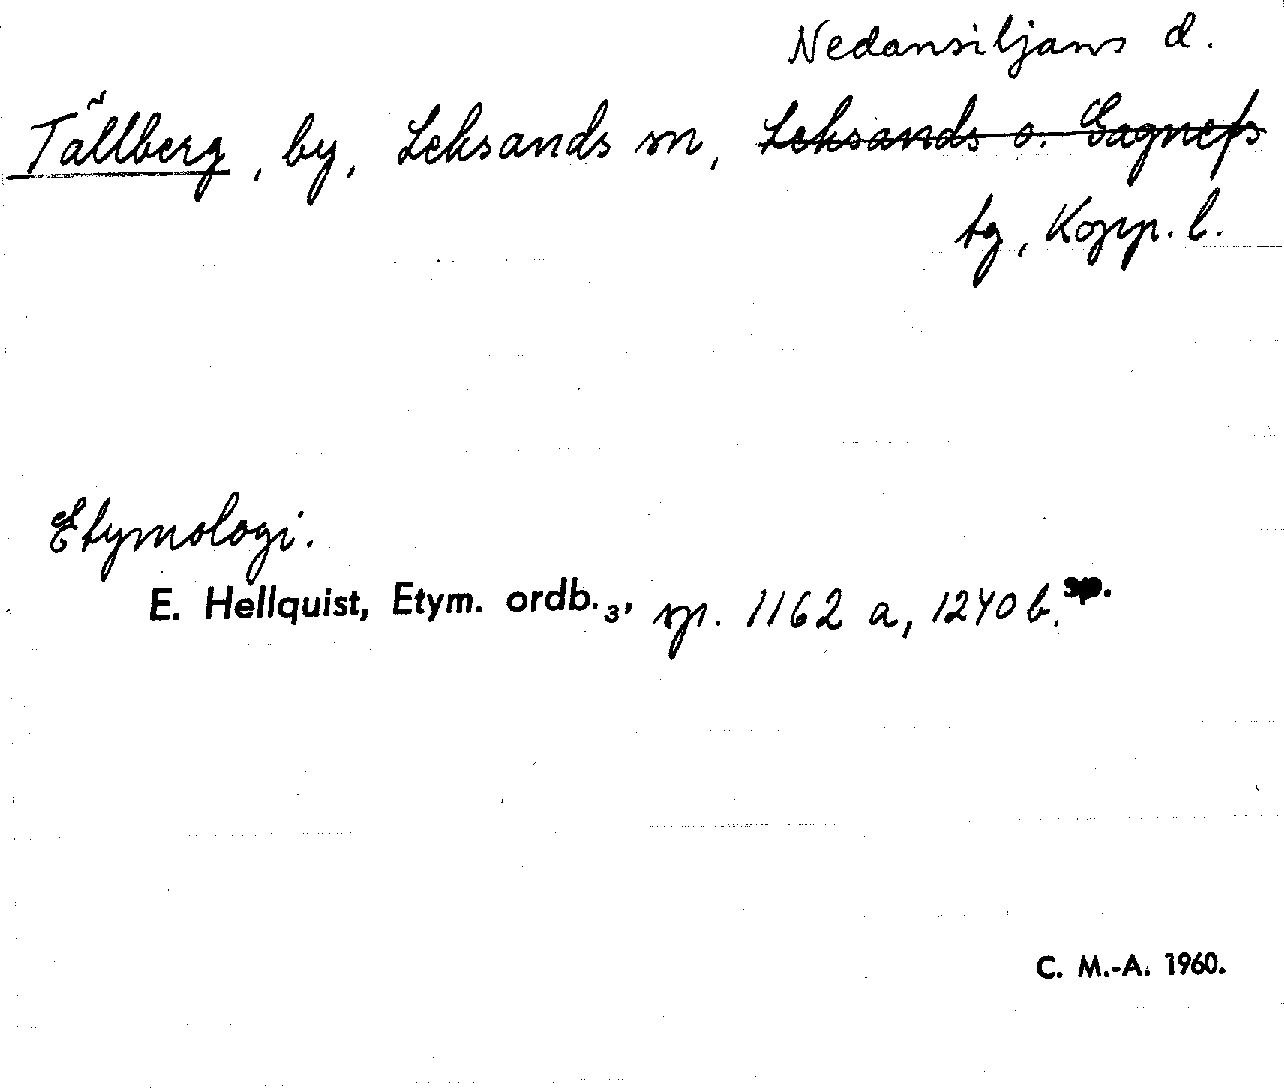 Nedansiljans d.
Tällberg, by, Leksands sn, Leksands o. Gagnefs
tg, Kopp. l.
Etymologi.
E. Hellquist, Etym. ordb.₃, sp. 1162 a, 1240 b. sp.
C. M.-A. 1960.